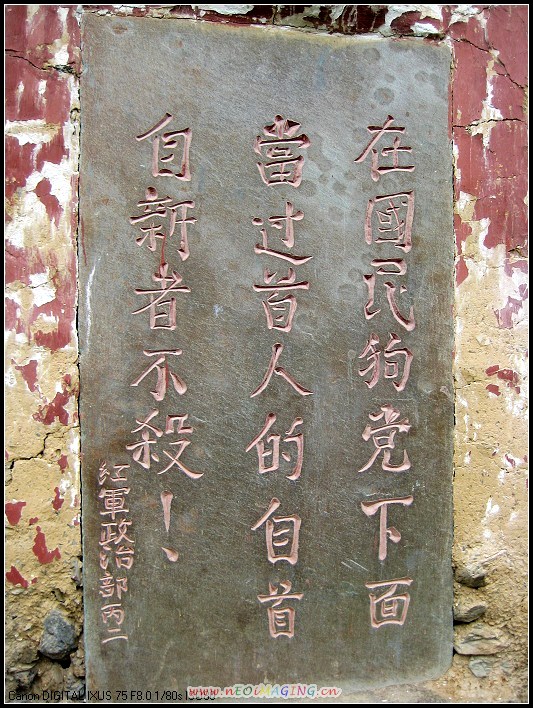 在國民狗党下面
當过首人的自首
自新者不殺！
紅軍政治部丙二
Canon DIGITAL IXUS 75 F8.0 1/80s
www.nEOiMAGING.cn